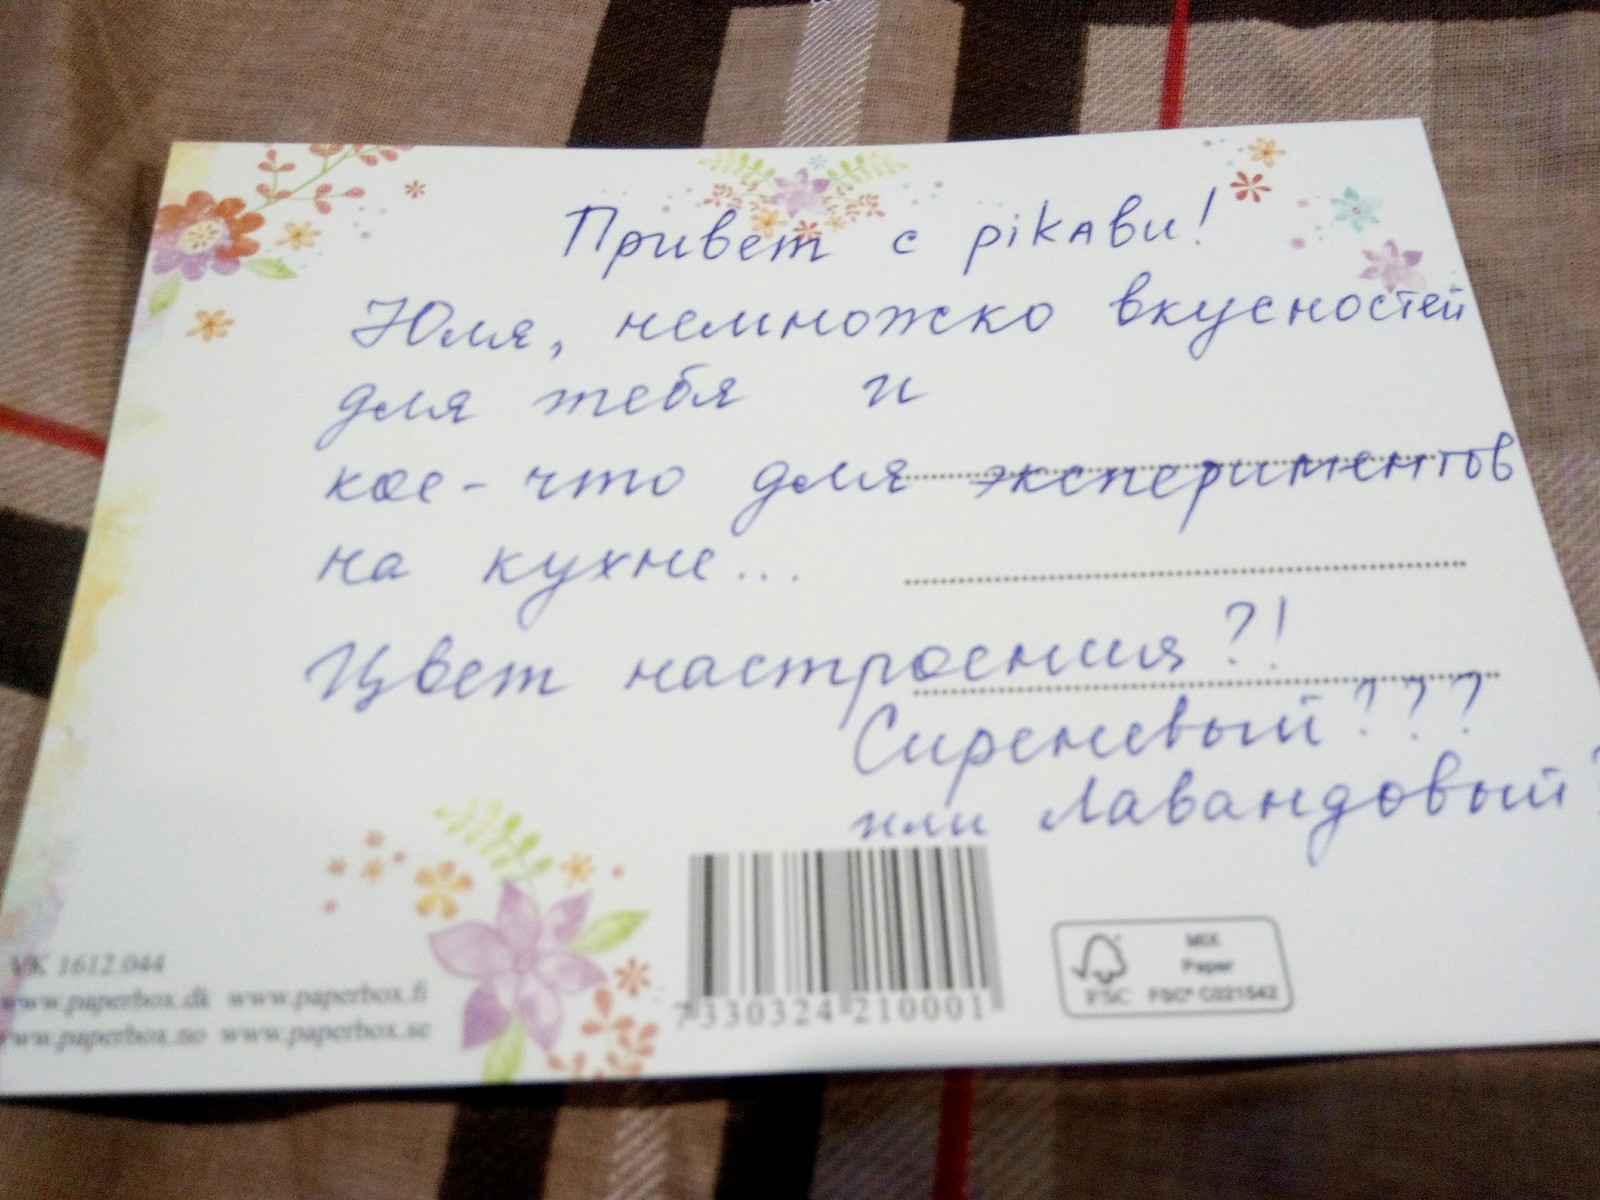 Привет с pikaви!
Юля, немножко вкусностей
для тебя и
кое-что для экспериментов
на кухне...
Цвет настроения?!
Сиреневый???
или Лавандовый?
VK 1612.044
www.paperbox.dk www.paperbox.fi
www.paperbox.no www.paperbox.se
7 330324 210001
MIX
Paper
FSC FSC® C021542